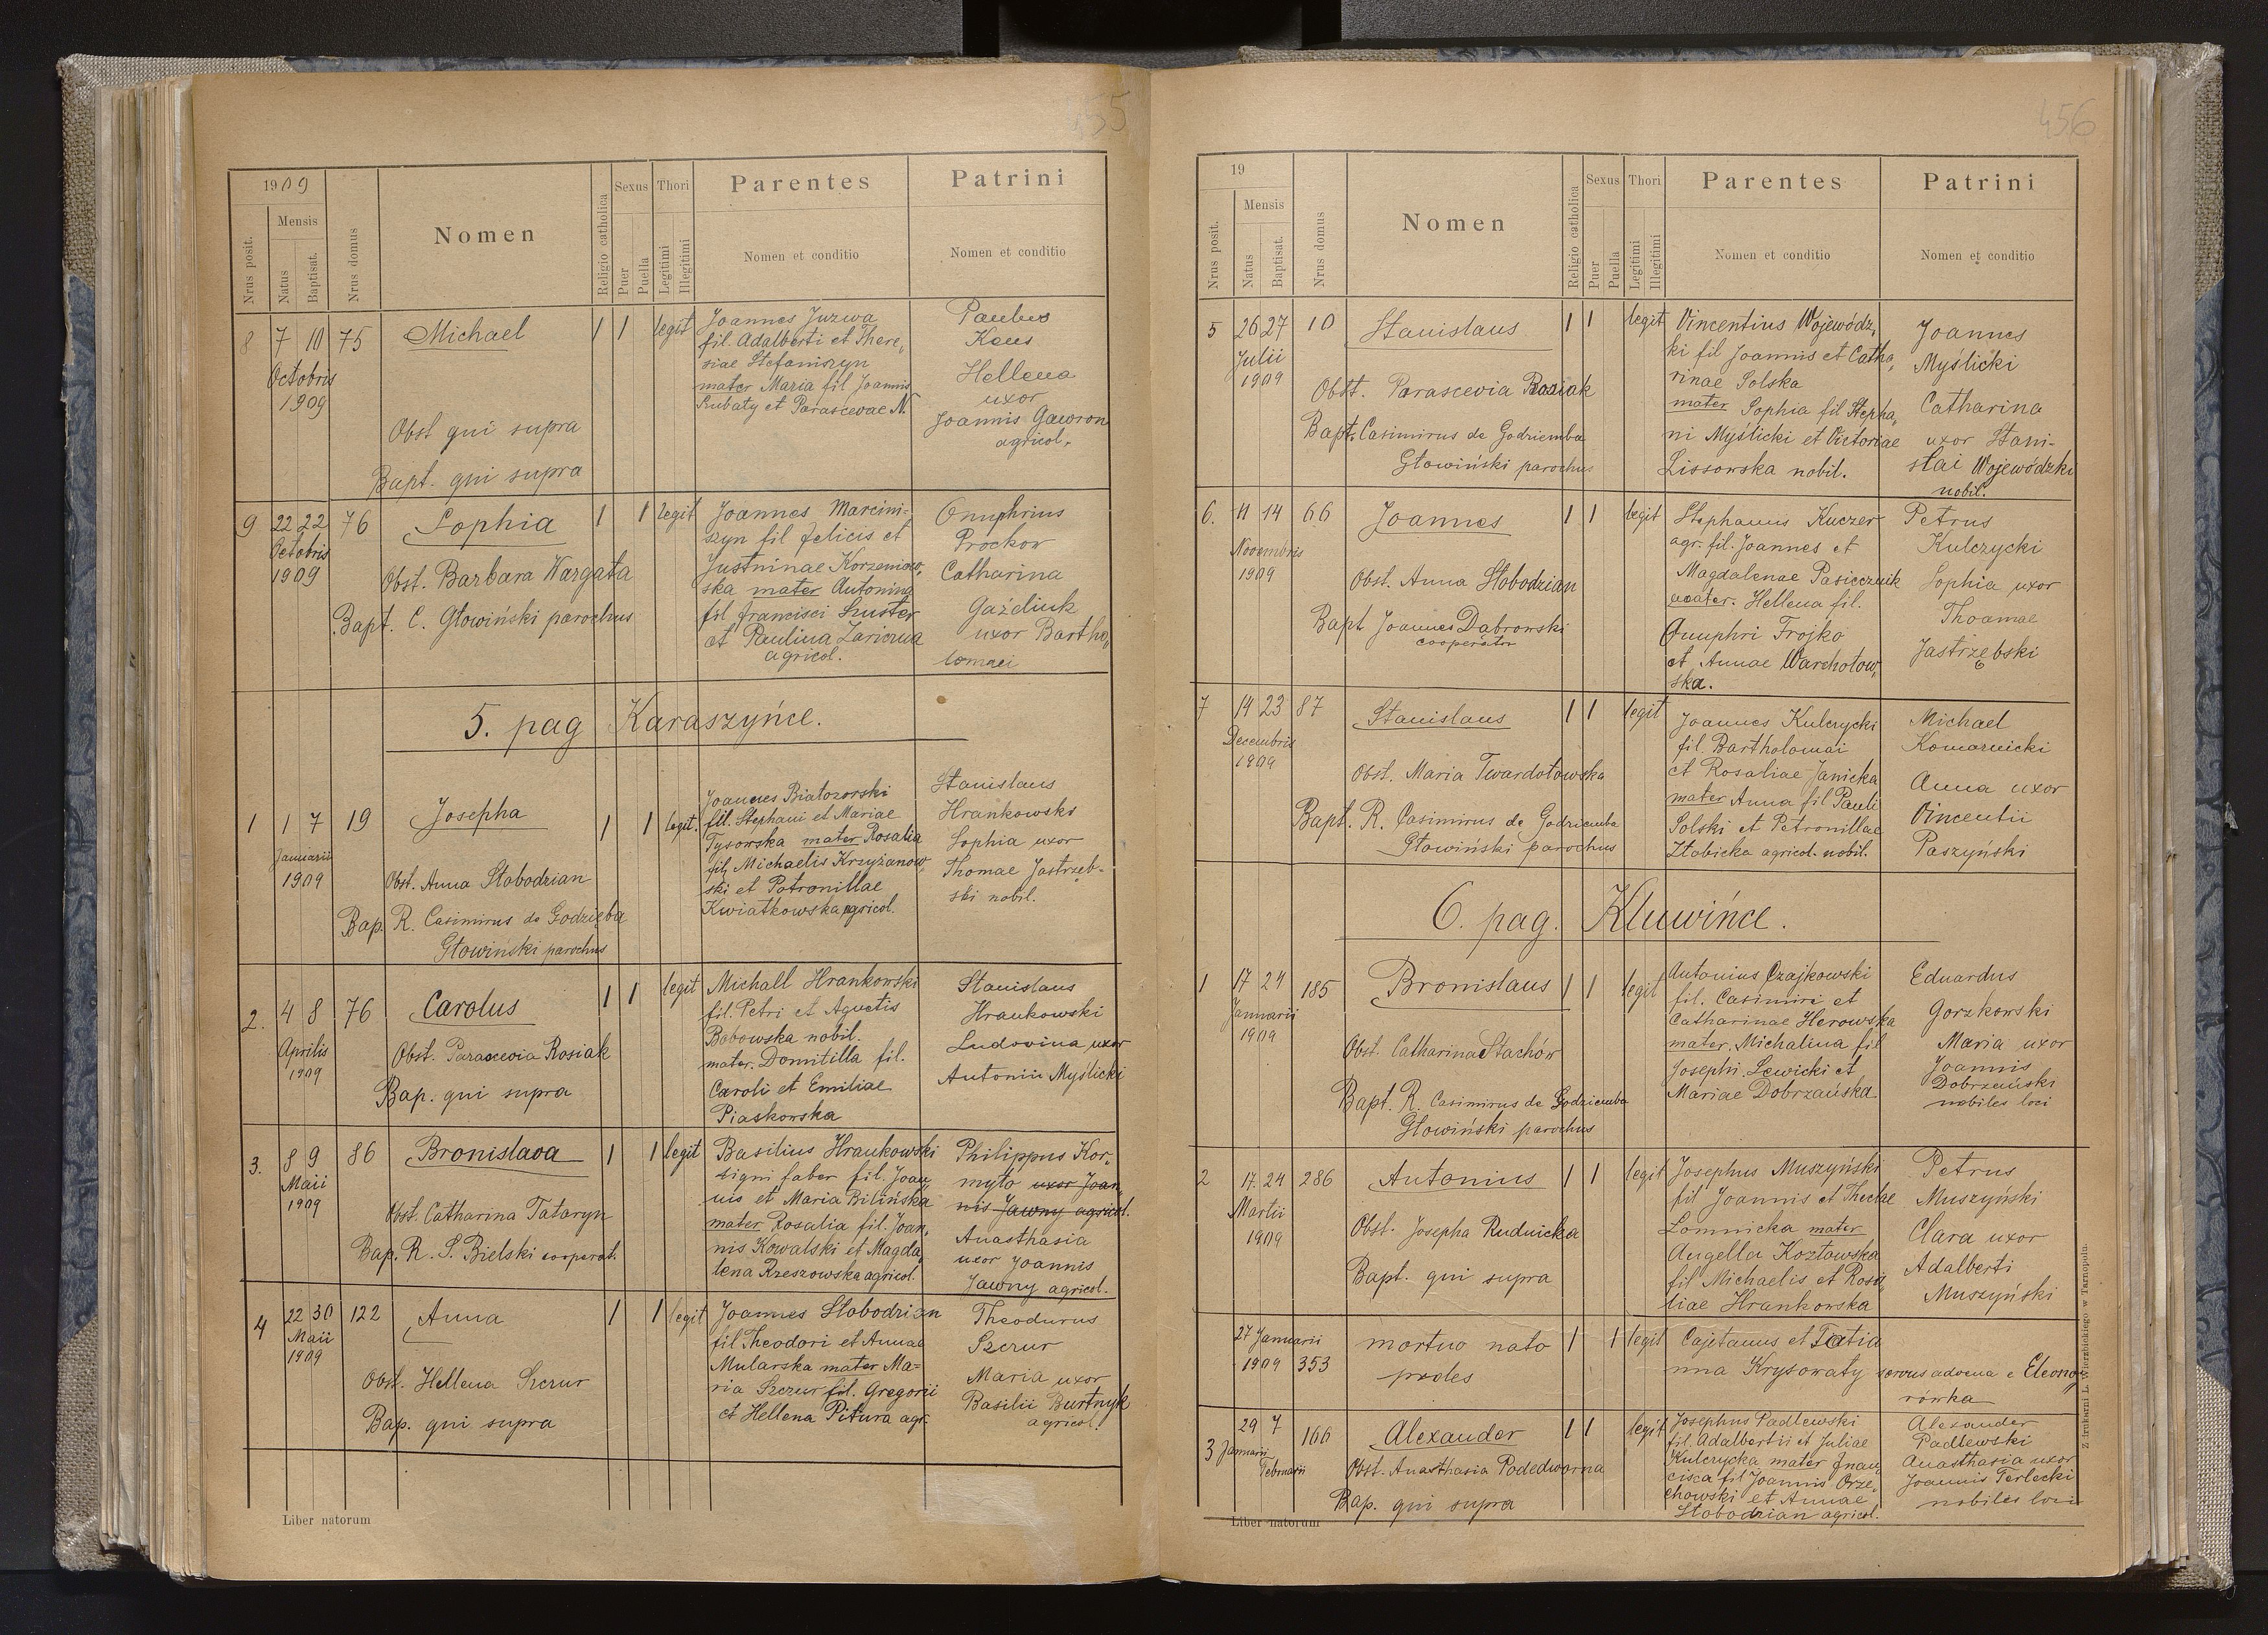 455
1909
Nrus posit.
Mensis
Natus
Baptisat.
Nrus domus
Nomen
Religio catholica
Sexus
Puer
Puella
Thori
Legitimi
Illegitimi
Parentes
Nomen et conditio
Patrini
Nomen et conditio
8 7 10 75 Michael 1 1 legit
Octobris
1909
Obst qui supra
Bapt. qui supra
Joannes Juzwa
fil. Adalberti et There,
siae Stefaniszyn
mater Maria fil Joannis
Szubaty et Parascevae N.
Paulus
Kous
Hellena
uxor
Joannis Gawron
agricol.
9 22 22 76 Sophia 1 1 legit
Octobris
1909
Obst. Barbara Wargata
Bapt. C. Głowiński parochus
Joannes Marcini-
szyn fil felicis et
Justninae Korzeniow,
ska mater Antonina
fil francisci Szuster
et Paulina Zariczna
agricol.
Onuphrius
Prockow
Catharina
Gaździuk
uxor Bartho,
lomaei
5. pag Karaszyńce.
1 1 7 19 Josepha 1 1 legit.
Januarii
1909
Obst. Anna Słobodzian
Bap. R. Casimirus de Godzięba
Głowiński parochus
Joannes Białozorski
fil. Stephani et Mariae
Tysowska mater Rosalia
fil Michaelis Krzyżanow,
ski et Petronillae
Kwiatkowska agricol.
Stanislaus
Hrankowski
Sophia uxor
Thomae Jastrzęb-
ski nobil.
2. 4 8 76 Carolus 1 1 legit
Aprilis
1909
Obst. Parascevia Rosiak
Bap. qui supra
Michall Hrankowski
fil. Petri et Agnetis
Bobowska nobil.
mater. Domitilla fil.
Caroli et Emiliae
Piaskowska
Stanislaus
Hrankowski
Ludovina uxor
Antonii Myślicki
3. 8 9 86 Bronislava 1 1 legit
Maii
1909
Obst. Catharina Tataryn
Bap. R. S. Bielski cooperat.
Basilius Hrankowski
ligni faber fil. Joan,
nis et Maria Bilińska
mater Rosalia fil. Joan,
nis Kowalski et Magda,
lena Rzeszowska agricol.
Philippus Kor,
myto uxor Joan,
nis Jawny agricol.
Anasthasia
uxor Joannis
Jawny agricol.
4 22 30 122 Anna 1 1 legit
Maii
1909
Obst. Hellena Szczur
Bap. qui supra
Joannes Słobodzian
fil Theodori et Annae
Mularska mater Ma=
ria Szczur fil. Gregorii
et Hellena Pitura agr.
Theodorus
Szczur
Maria uxor
Basilii Burtnyk
agricol.
Liber natorum
456
19
Nrus posit.
Mensis
Natus
Baptisat.
Nrus domus
Nomen
Religio catholica
Sexus
Puer
Puella
Thori
Legitimi
Illegitimi
Parentes
Nomen et conditio
Patrini
Nomen et conditio
5 26 27 10 Stanislaus 1 1 legit
Julii
1909
Obst. Parascevia Rosiak
Bapt. Casimirus de Godziemba
Głowiński parochus
Vincentius Wojewódz,
ki fil Joannis et Catha,
rinae Solska
mater Sophia fil Stepha,
ni Myślicki et Victoriae
Lissowska nobil.
Joannes
Myślicki
Catharina
uxor Stani-
slai Wojewódzki
nobil.
6. 11 14 66 Joannes 1 1 legit
Novembris
1909
Obst. Anna Słobodzian
Bapt Joannes Dąbrowski
cooperator
Stephanus Kuczer
agr. fil. Joannes et
Magdalenae Pasiecznik
mater. Hellena fil.
Onuphri Trojko
et Annae Warchołow,
ska.
Petrus
Kulczycki
Sophia uxor
Thoamae
Jastrzębski
7 14 23 87 Stanislaus 1 1 legit
Decembris
1909
Obst. Maria Twardołowska
Bapt. R. Casimirus de Godziemba
Głowiński parochus
Joannes Kulczycki
fil. Bartholomai
et Rosaliae Janicka
mater Anna fil Pauli
Solski et Petronillae
Złobicka agricol. nobil.
Michael
Komarnicki
Anna uxor
Vincentii
Paszyński
6. pag. Kluwińce.
1 17 24 185 Bronislaus 1 1 legit
Januarii
1909
Obst. Catharina Stachów
Bapt. R. Casimirus de Godziemba
Głowiński parochus
Antonius Czajkowski
fil. Casimiri et
Catharinae Herowska
mater. Michalina fil
Josephi Lewicki et
Mariae Dobrzańska
Eduardus
Gorzkowski
Maria uxor
Joannis
Dobrzański
nobiles loci
2 17. 24 286 Antonius 1 1 legit
Martii
1909
Obst. Josepha Rudnicka
Bapt. qui supra
Josephus Muszyński
fil Joannis et Theclae
Lomnicka mater
Angella Kozłowska
fil Michaelis et Rosa,
liae Hrankowska
Petrus
Muszyński
Clara uxor
Adalberti
Muszyński
27 Januarii
1909 353 mortuo nato 1 1 legit
prodes
Cajetanus et Tatia
nna Krysowaty servus advena e Eleono,
rówka
3 29 7 166 Alexander 1 1 legit
Januarii
Februarii
Obst. Anasthasia Podedworna
Bap. qui supra
Josephus Padlewski
fil. Adalbertii et Juliae
Kulczycka mater fran,
cisca fil Joannis Orze,
chowski et Annae
Słobodzian agricol.
Alexander
Padlewski
Anasthasia uxor
Joannis Terlecki
nobiles loci
Liber natorum
Z drukarni L. Wierzbickiego w Tarnopolu.